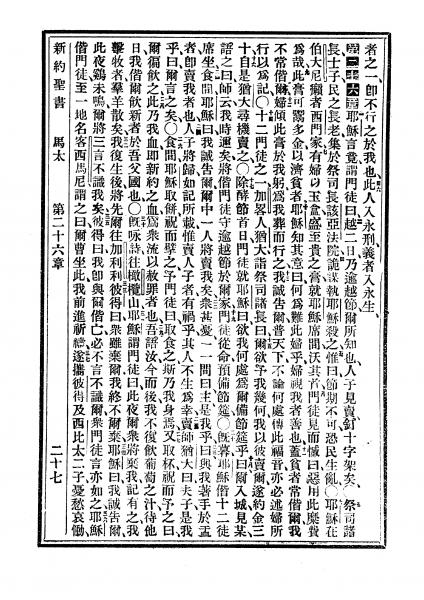 者之一卽不行之於我也此人入永刑義者入永生
第二十六章耶穌言竟謂門徒曰越二日乃逾越節爾所知也人子見賣釘十字架矣○祭司諸
長士子民之長老集於祭司長該亞法院詭謀執耶穌殺之惟曰節期不可恐民生亂○耶穌在
伯大尼癩者西門家有婦以玉盒盛至貴之膏就耶穌席間沃其首門徒見而憾曰惡用此糜費
爲哉此膏可鬻多金以濟貧者耶穌知其意曰何爲難此婦乎婦視我者善也蓋貧者常偕爾我
不常偕爾婦傾此膏於我躬爲我葬而行之我誠告爾普天下不論何處傳此福音亦必述婦所
行以爲記○十二門徒之一加畧人猶大市祭司諸長曰爾欲予我幾何我以彼賣爾遂約金三
十自是猶大尋機賣之○除酵節首日門徒就耶穌曰欲我何處爲爾備節筵乎曰爾入城見某
語之曰師云我時邇矣將偕門徒守逾越節於爾家門徒從命預備節筵○旣暮耶穌偕十二徒
席坐食間耶穌曰我誠告爾爾中一人將賣我矣衆甚憂一一問曰主是我乎曰與我著手於盂
者卽賣我者也人子將歸如記所載惟賣人子者有禍乎其人不生爲幸賣師猶大曰夫子是我
乎曰爾言之矣○食間耶穌取餅祝而擘之予門徒曰取食之斯乃我身焉又取杯祝而予之曰
爾徧飲之此乃我血卽新約之血爲衆流以赦罪者也吾語汝今而後我不復飲葡萄之汁待他
日我偕爾飲新者於吾父國也○旣咏詩往橄欖山耶穌謂門徒曰此夜爾衆將棄我記有之我
擊牧者羣羊散矣我復生後將先爾往加利利彼得曰衆雖棄爾我終不爾棄耶穌曰我誠告爾
此夜鷄未鳴爾將三言不識我矣彼得曰我卽與爾偕亡必不言不識爾衆門徒言亦如之耶穌
偕門徒至一地名客西馬尼謂之曰爾曹坐此我前進祈禱遂攜彼得及西比太二子憂愁哀慟
新約聖書 馬太 第二十六章 二十七